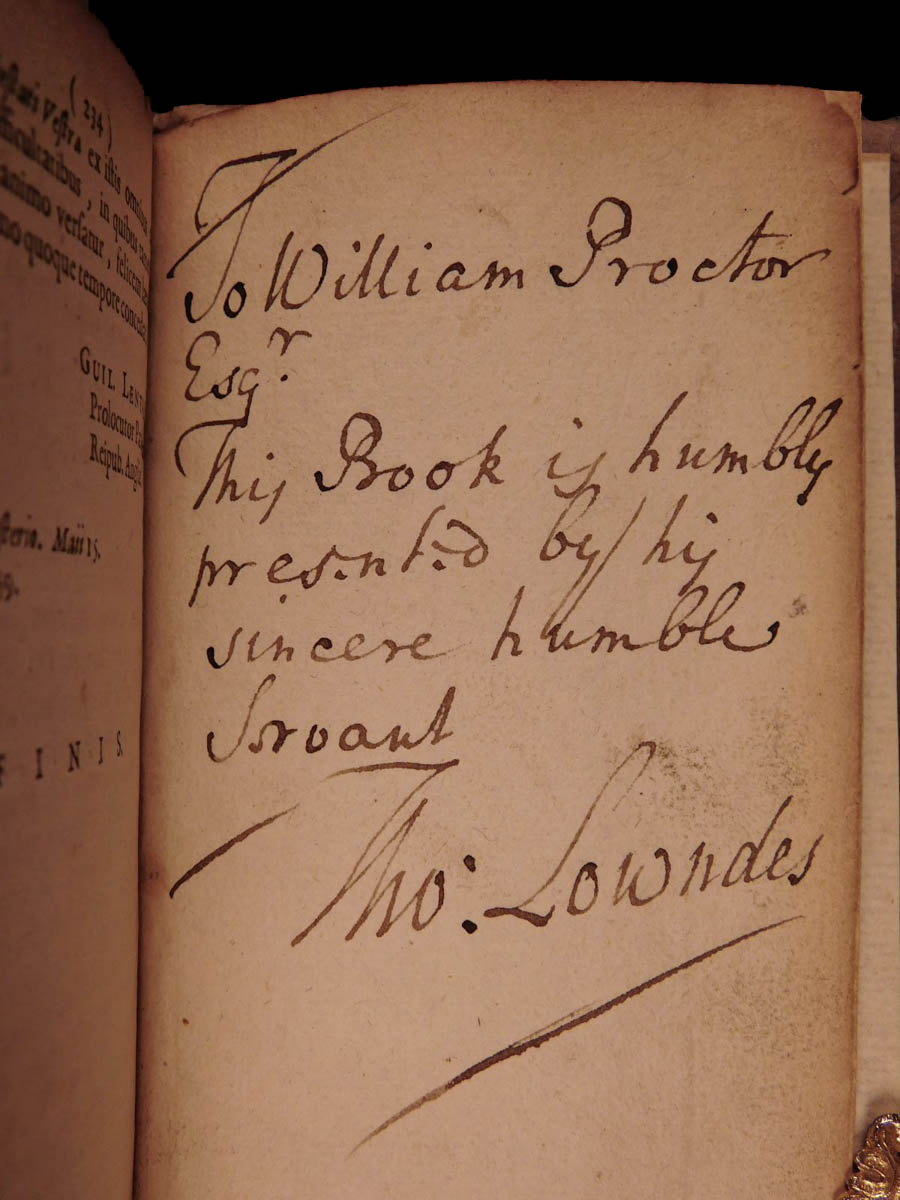 ( 234 )
Vestra ex istis omnibus
difficultatibus, in quibus
animo versatur, felicem
quoque tempore
GUIL.
Prolocutor
Reipub. Angl
Maii 15.
FINIS.
To William Proctor
Esqr.
This Book is humbly
presented by his
sincere humble
Servant
Tho: Lowndes